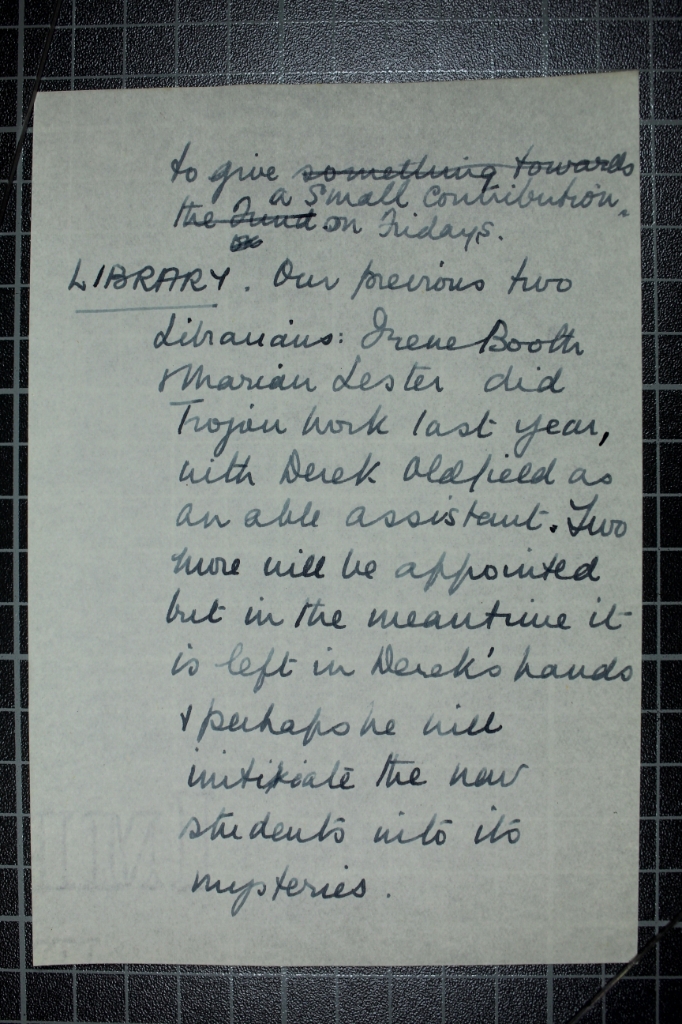 to give something towards
a small contribution,
the Fund on Fridays.
LIBRARY. Our previous two
Librarians: Irene Booth
& Marian Lester did
Trojan work last year,
with Derek Oldfield as
an able assistant. Two
more will be appointed
but in the meantime it
is left in Derek's hands
& perhaps he will
initiate the new
students into its
mysteries.